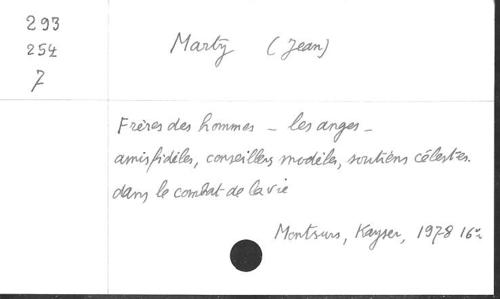 293
254
7
Marty (Jean)
Frères des hommes - les anges -
amis fidèles, conseillers modèles, soutiens célestes.
dans le combat de la vie
Montsurs, Kayser, 1978 16°